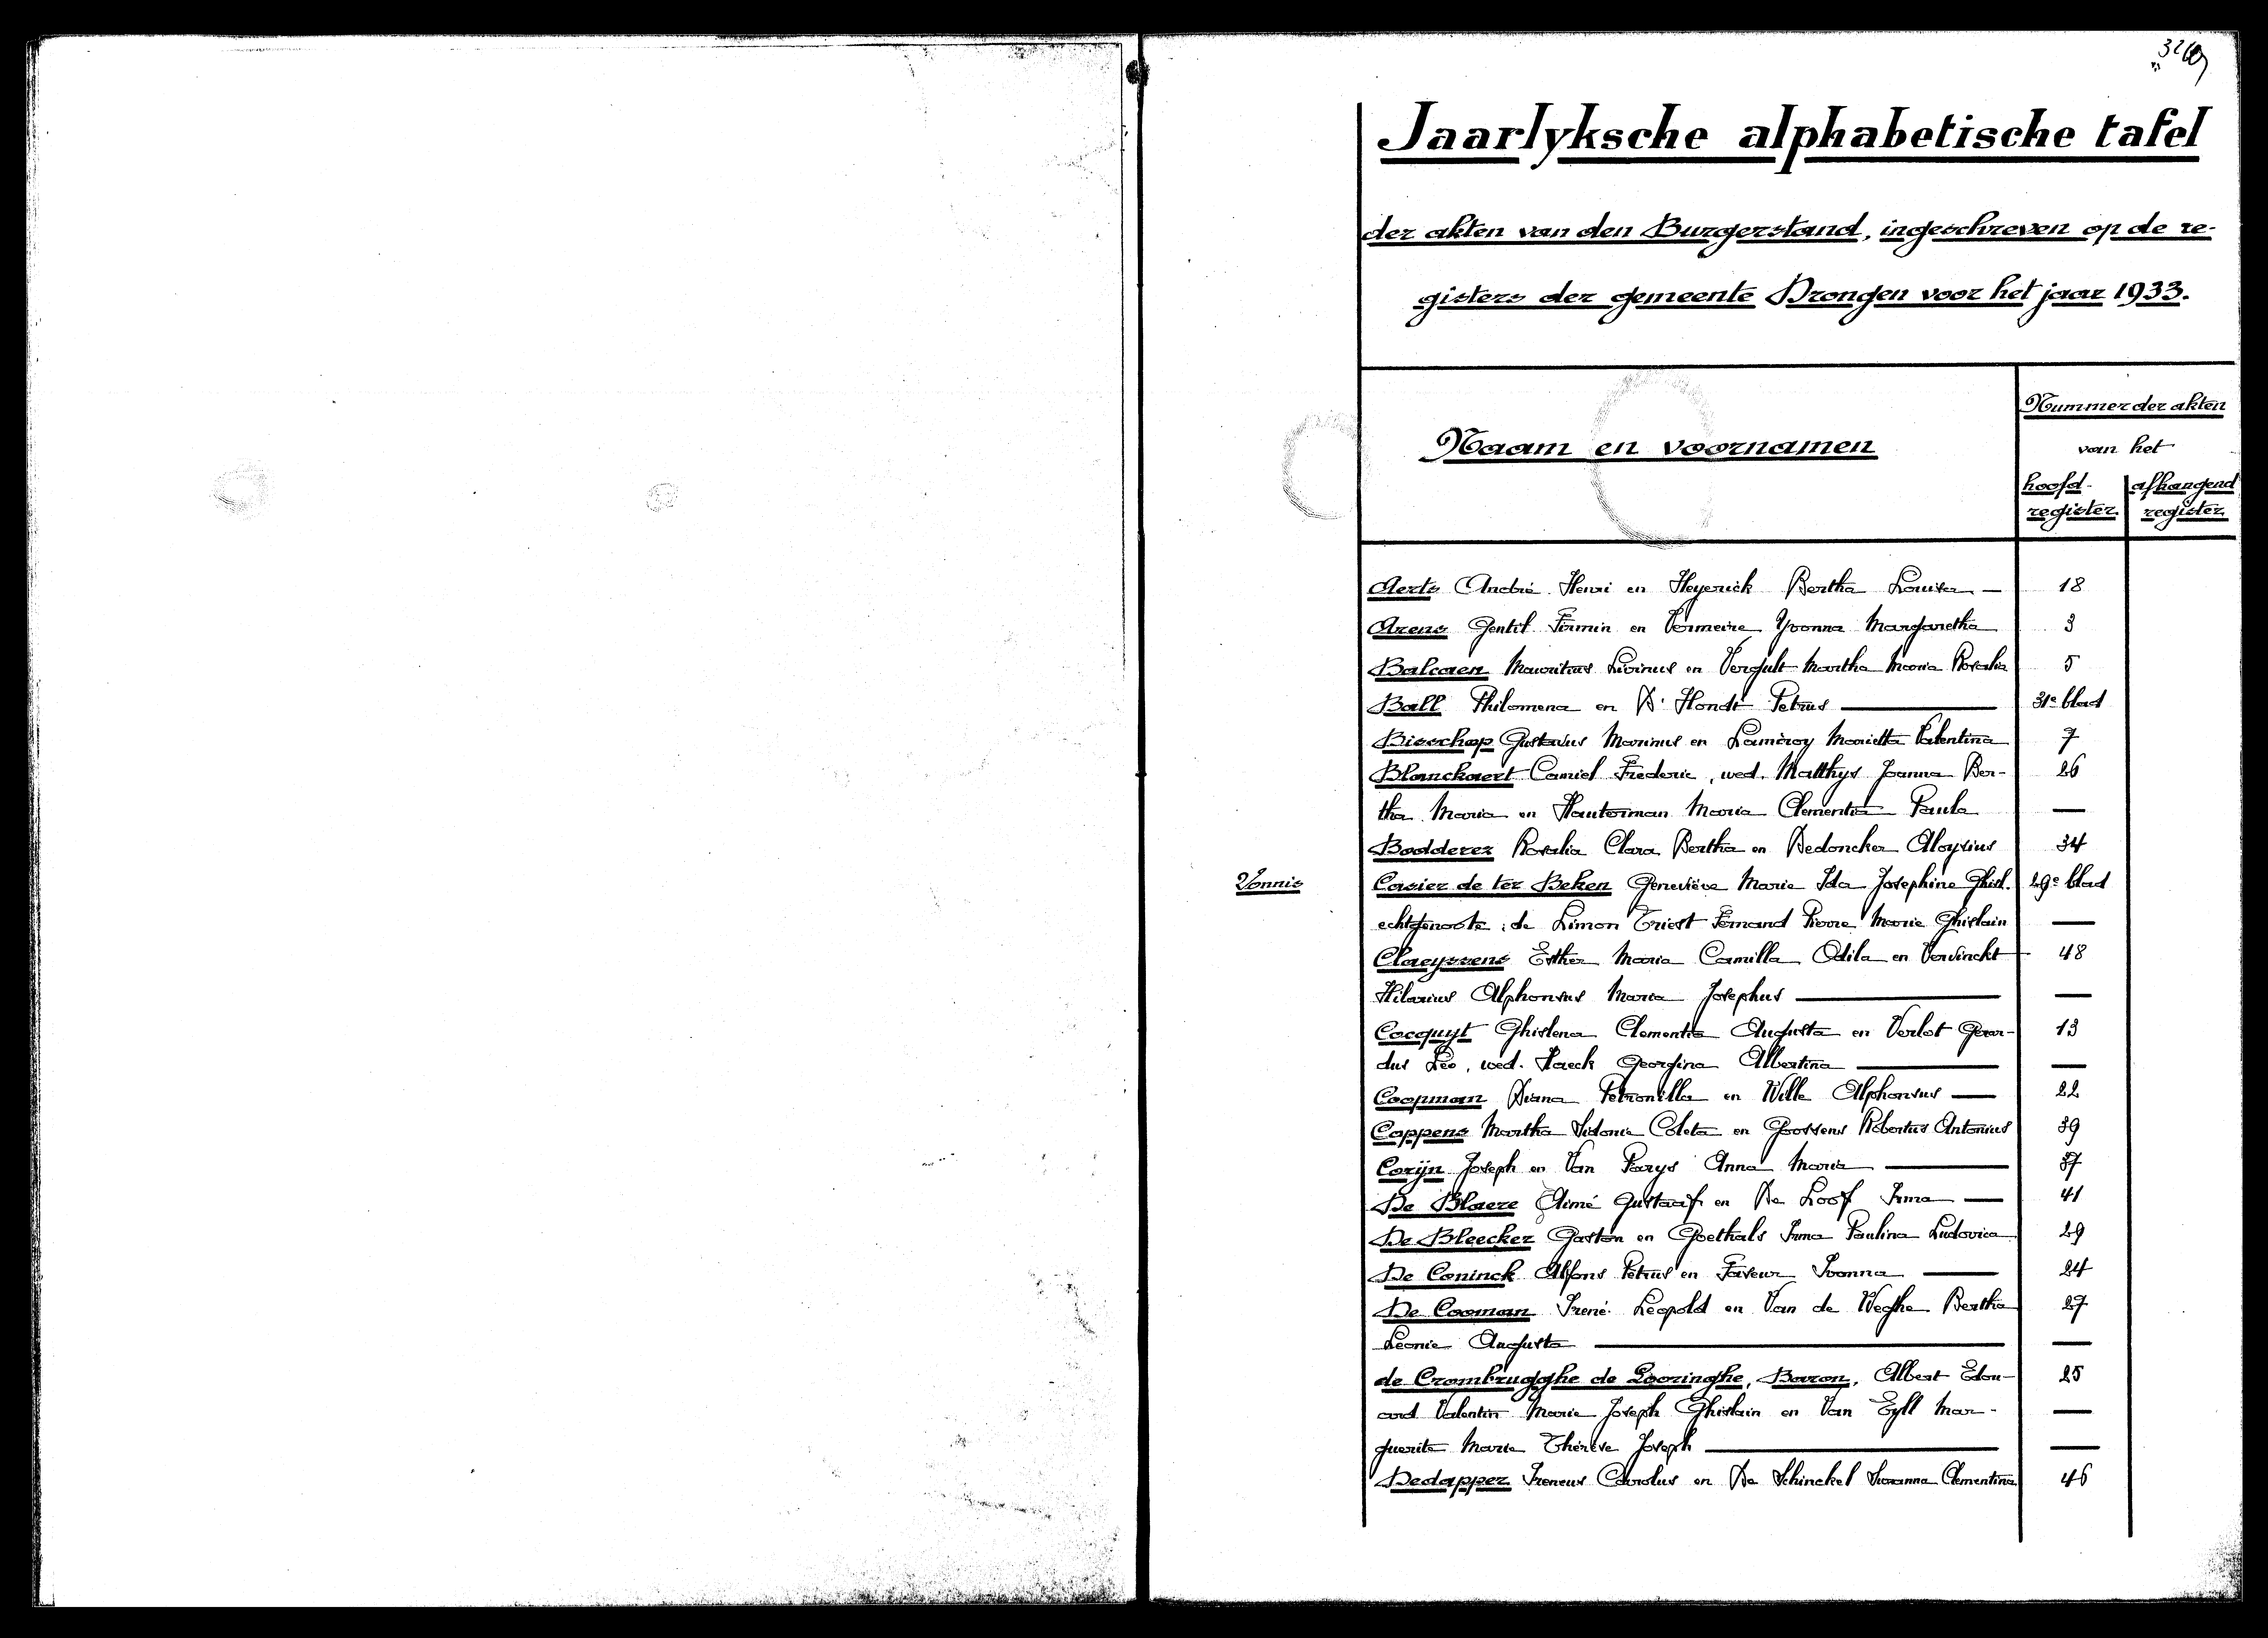 Jaarlyksche alphabetische tafel
der akten van den Burgerstand, ingeschreven op de re-
gisters der gemeente Drongen voor het jaar 1933.
Naam en voornamen
Nummer der akten
van het
hoofd-
register.
afhangend
register
Aerts André Henri en Heyerick Bertha Louisa — 18
Arens Gentil Firmin en Vermeire Yvonna Margaretha 3
Balcaen Mauritius Livinus en Vergult Martha Maria Rosalia 5
Ball Philomena en D'Hondt Petrus — 31e blad
Bisschop Gustavus Marinus en Lameroy Marietta Valentina 7
Blanckaert Camiel Frederic, wed. Matthys Joanna Ber- 26
tha Maria en Hauterman Maria Clementia Paula —
Bodderez Rosalia Clara Bertha en Dedoncker Aloysius 34
Vonnis Casier de ter Beken Geneviève Marie Ida Josephine Ghisl. 29e blad
echtgenoote: de Limon Triest Fernand Pierre Marie Ghislain —
Claeyssens Esther Maria Camilla Odila en Vervinckt 48
Hilarius Alphonsus Maria Josephus — —
Cocquyt Ghislena Clementia Augusta en Verlot Gerar- 13
dus Leo, wed. Haeck Georgina Albertina — —
Coopman Diana Petronilla en Wille Alphonsus — 22
Coppens Martha Sidonie Coleta en Goossens Robertus Antonius 39
Corijn Joseph en Van Parys Anna Maria — 37
De Blaere Aimé Gustaaf en De Loof Irma — 41
De Bleecker Gaston en Goethals Irma Paulina Ludovica 29
De Coninck Alfons Petrus en Faveur Ivonna — 24
De Cooman Irené Leopold en Van de Weghe Bertha 27
Leonie Augusta — —
de Crombrugghe de Looringhe, Baron, Albert Edou- 25
ard Valentin Marie Joseph Ghislain en Van Eyll Mar- —
guerite Marie Thérèse Joseph — —
Dedapper Ireneus Carolus en De Schinckel Suzanna Clementina 46